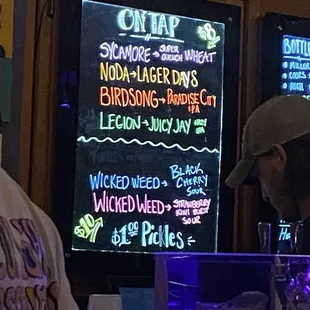 ON TAP
SYCAMORE → SUPER QUENCH WHEAT
NODA → LAGER DAYS
BIRDSONG → PARADISE CITY
IPA
LEGION → JUICY JAY
IPA
WICKED WEED → BLACK
CHERRY
SOUR
WICKED WEED → STRAWBERRY
KIWI
SOUR
$1.00 Pickles
BOTTLE
MILLER
COORS